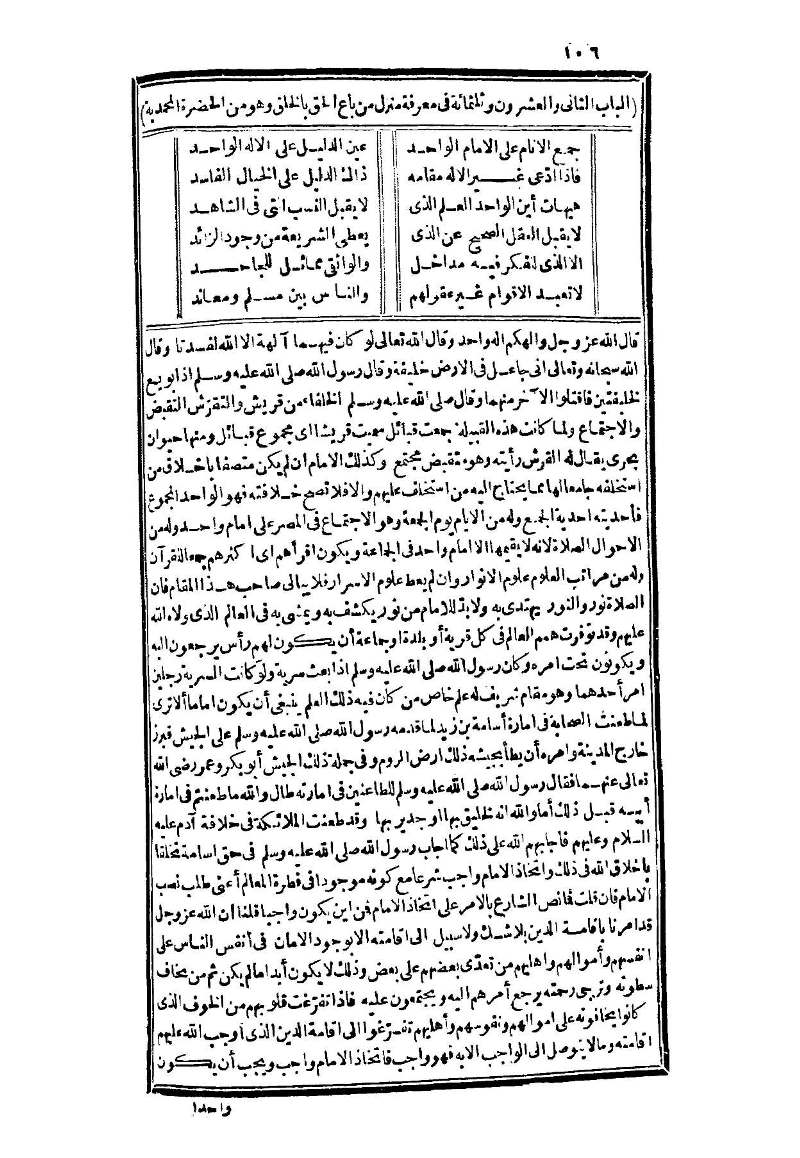 ١٠٦
(الباب الثاني والعشرون وثلثمائة في معرفة منزل من باع الحق بالخلق وهو من الحضرة المحمدية)
جمع الانام على الامام الواحد عين الدليل على الاله الواحد
فاذا ادّعى غير الاله مقامه ذاك الدليل على الخيال الفاسد
هيهات أين الواحد العلم الذى لا يقبل النسب التى فى الشاهد
لا يقبل العقل الصحيح عن الذى يعطى الشريعة من وجود الزائد
الا الذى لفكر فيه مداخل والواثق مماثل للجاحد
لا تعبد الاقوام غير عقولهم والناس بين مسلم ومعاند
قال الله عز وجل والهكم اله واحد وقال الله تعالى لو كان فيهما آلهة الا الله لفسدتا وقال
الله سبحانه وتعالى انى جاعل فى الارض خليفة وقال رسول الله صلى الله عليه وسلم اذا بويع
لخليفتين فاقتلوا الآخر منهما وقال صلى الله عليه وسلم الخلفاء من قريش والتقرّش التقبض
والاجتماع ولما كانت هذه القبيلة جمعت قبائل سميت قريشا اى مجموع قبائل ومنها حيوان
بحرى يقال له القرش رأيته وهو متقبض مجتمع وكذلك الامام ان لم يكن متصفا باخلاق من
استخلفه جامعا لها مما يحتاج اليه من استخلف عليهم والا فلا تصح خلافته فهو الواحد المجموع
فأحديته احدية الجمع وله من الايام يوم الجمعة وهو الاجتماع فى المصر على امام واحد وله من
الاحوال الصلاة لانه لا يقيمها الا امام واحد فى الجماعة ويكون اقرأهم اى اكثرهم جمعا للقرآن
وله من مراتب العلوم علوم الانوار وان لم يعط علوم الاسرار فلا يبالى صاحب هذا المقام فان
الصلاة نور والنور يهتدى به ولا بدّ للامام من نور يكشف به ويمشى به فى العالم الذى ولاه الله
عليهم وقد توفرت همم العالم فى كل قرية أو بلدة او جماعة أن يكون لهم رأس يرجعون اليه
ويكونون تحت امره وكان رسول الله صلى الله عليه وسلم اذا بعث سرية ولو كانت السرية رجلين
امر أحدهما وهو مقام شريف له علم خاص من كان فيه ذلك العلم ينبغى أن يكون اماما ألا ترى
لما طعنت الصحابة فى امارة أسامة بن زيد لما قدمه رسول الله صلى الله عليه وسلم على الجيش فبرز
خارج المدينة وامره أن يطأ بجيشه ذلك ارض الروم وفى جملة ذلك الجيش أبو بكر وعمر رضى الله
تعالى عنهما فقال رسول الله صلى الله عليه وسلم للطاعنين فى امارته طال والله ما طعنتم فى امارة
أبيه قبل ذلك أما والله انه لخليق بها او جدير بها وقد طعنت الملائكة فى خلافة آدم عليه
السلام وعليهم فاجابهم الله على ذلك كما اجاب رسول الله صلى الله عليه وسلم فى حق اسامة تخلقا
باخلاق الله فى ذلك واتخاذ الامام واجب شرعا مع كونه موجودا فى فطرة العالم أعنى طلب نصب
الامام فان قلت فما نص الشارع بالامر على اتخاذ الامام فمن اين يكون واجبا قلنا ان الله عز وجل
قد امرنا باقامة الدين بلا شك ولا سبيل الى اقامته الا بوجود الامان فى أنفس الناس على
انفسهم وأموالهم واهليهم من تعدّى بعضهم على بعض وذلك لا يكون أبدا ما لم يكن ثم من يخاف
سطوته وترجى رحمته يرجع أمرهم اليه ويجتمعون عليه فاذا تفرّغت قلوبهم من الخوف الذى
كانوا يخافونه على اموالهم ونفوسهم وأهليهم تفرّغوا الى اقامة الدين الذى أوجب الله عليهم
اقامته وما لا يتوصل الى الواجب الا به فهو واجب فاتخاذ الامام واجب ويجب أن يكون
واحدا